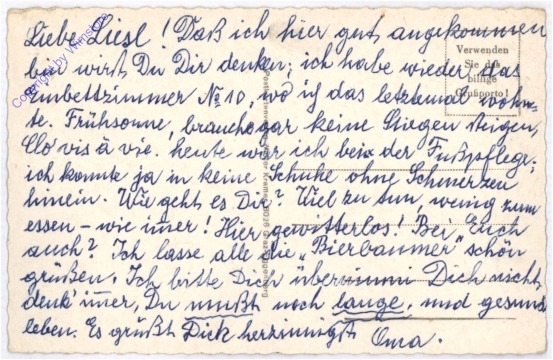 Liebe Liesl! Daß ich hier gut angekommen
bin wirst Du Dir denken; ich habe wieder das
Einbettzimmer No 10, wo ich das letztemal wohn-
te. Frühsonne, brauche gar keine Stiegen steigen,
Clo vis à vie. heute war ich beim der Fußpflege;
ich konnte ja in keine Schuhe ohne Schmerzen
hinein. Wie geht es Dir? Viel zu tun, wenig zum
essen – wie imer! Hier gewitterlos! Bei Euch
auch? Ich lasse alle die „Bierbaumer" schön
grüßen. Ich bitte Dich übernimm Dich nicht,
denk' imer, Du mußt noch lange, und gesund
leben. Es grüßt Dich herzinnigst Oma.
Verwenden
Sie das
billige
Grußporto!